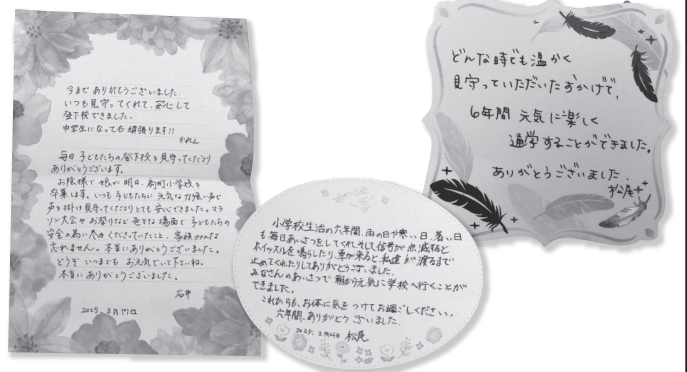 今まで ありがとうございました。
いつも 見守ってくれて、安心して
登下校できました。
中学生になっても 頑張ります!!
毎日 子どもたちの登下校を見守ってくださり
ありがとうございます。
お陰様で 娘が 明日、小学校を
卒業します。いつも 子どもたちに 元気な力強い声で
声を掛け見守ってくださりとても安心できました。マラ
ソン大会やお祭りなど 色々な場面で 子どもたちの
安全の為にご尽力くださっていたこと、家族みんな
忘れません。本当にありがとうございました。
どうぞ いつまでも お元気でいて下さいね。
本当に ありがとうございました。
石井
2025.3月17日
小学校生活の六年間、雨の日や寒い日、暑い日
も毎日あいさつをしてくれ、そして信号が点滅すると
ホイッスルを鳴らしたり、車が来ると、私達が渡るまで
止めてくれたりしてありがとうございました。
みなさんのあいさつで 朝から元気に学校へ行くことが
できました。
これからも、お体に気をつけてお過ごしください。
六年間、ありがとうございました。
2025. 3月 松尾
どんな時でも温かく
見守っていただいたおかげで、
6年間 元気に楽しく
通学することができました。
ありがとうございました。
松尾